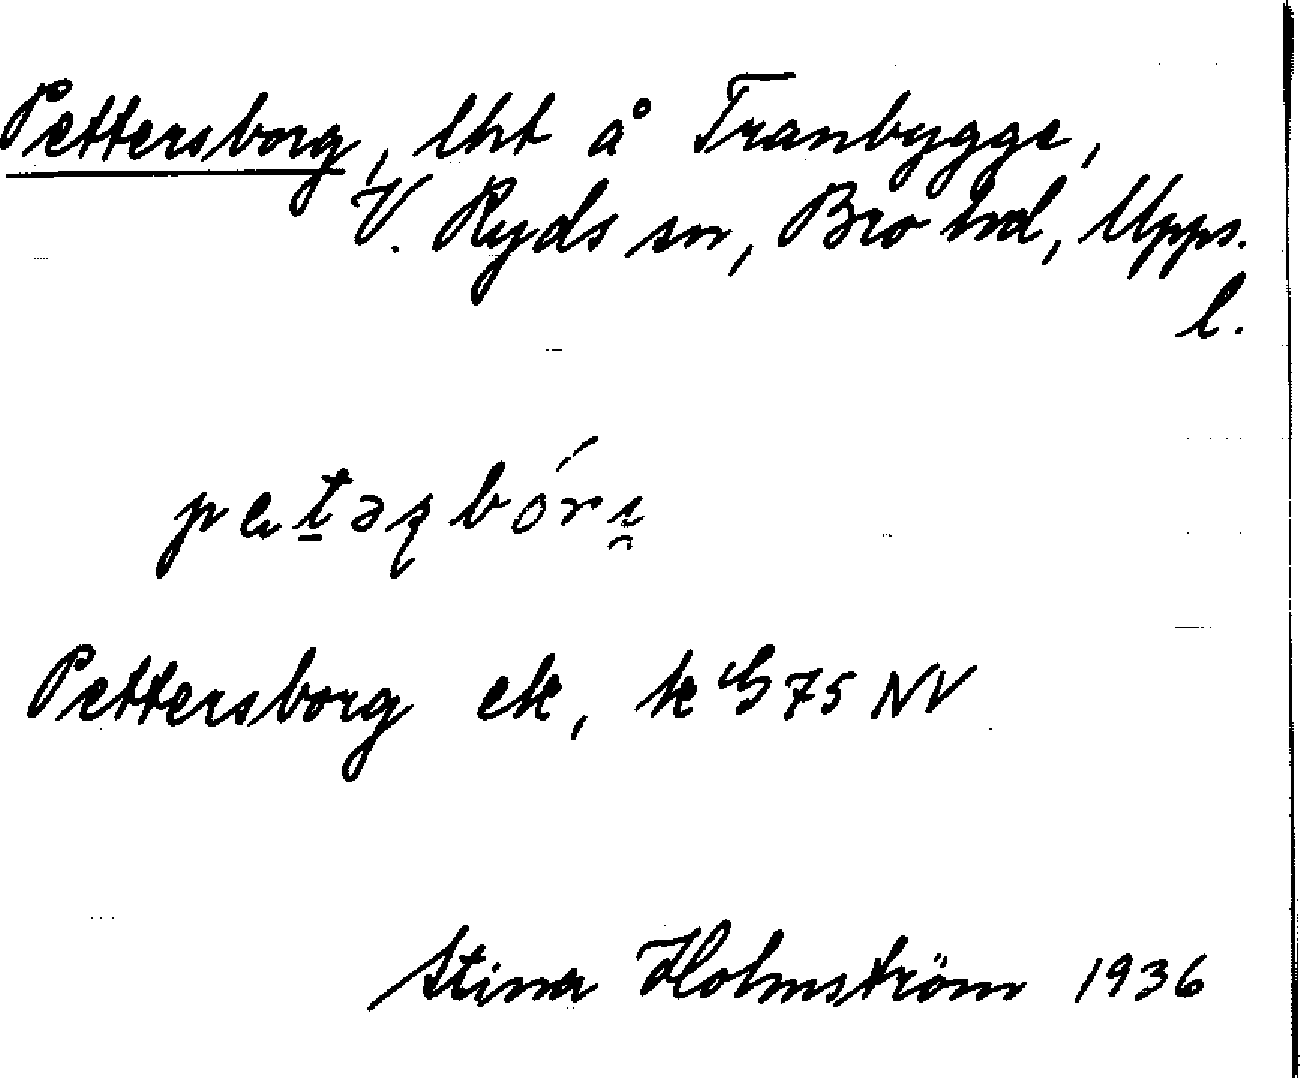 Pettersborg, lht å Tranbygge,
V. Ryds sn, Bro hd, Upps.
l.
Pettersborg ek, k G 75 NV
Stina Holmström 1936